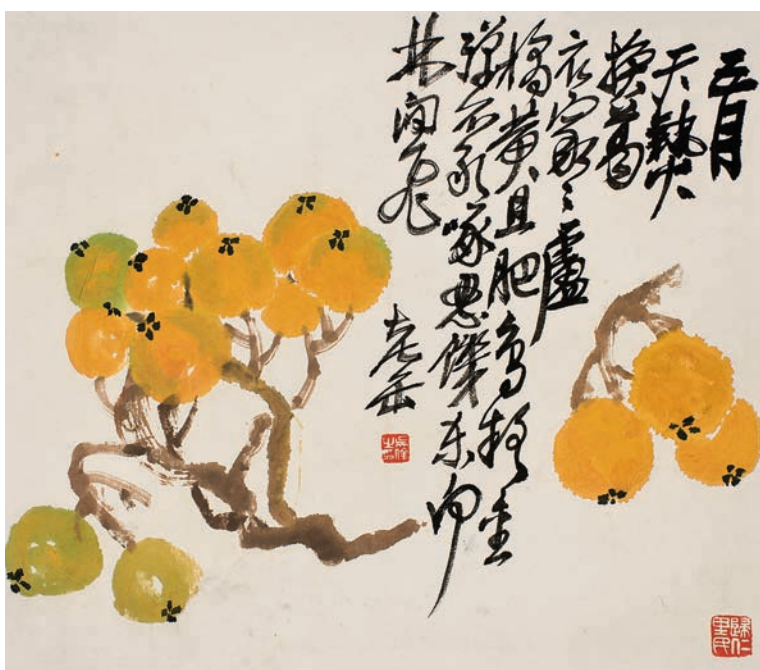 五月
天熱
換葛
衣家々盧
橘黃且肥鳥疑金
彈不敢啄忍饑向
林間飛
老缶
吳俊之印
歸仁里民